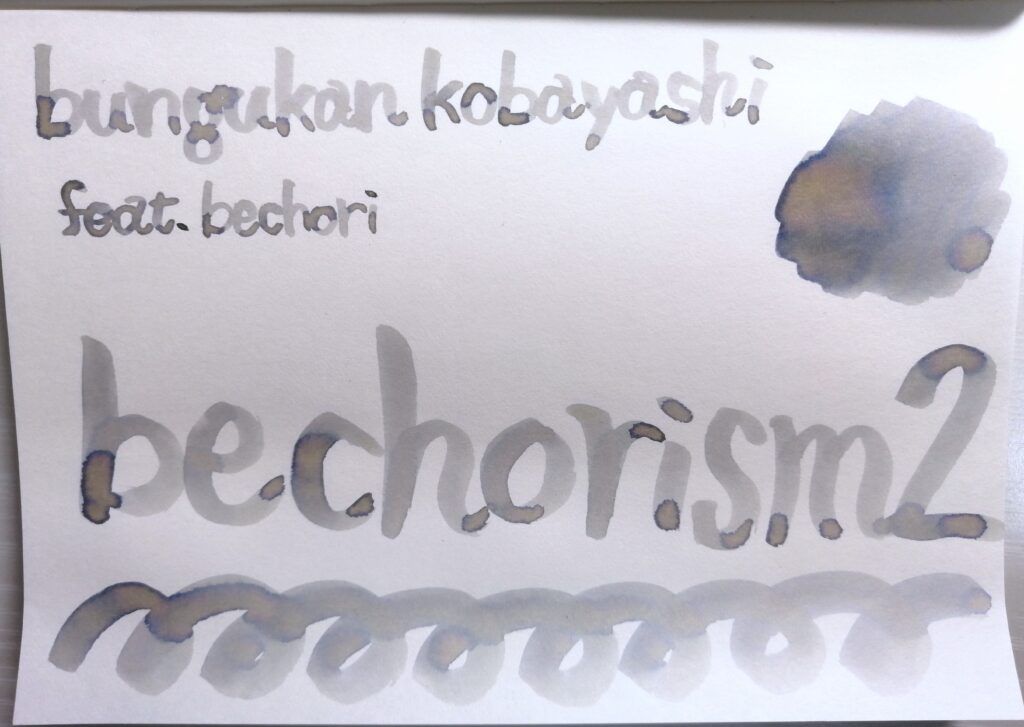 bungukan kobayashi
feat. bechori
bechorism2